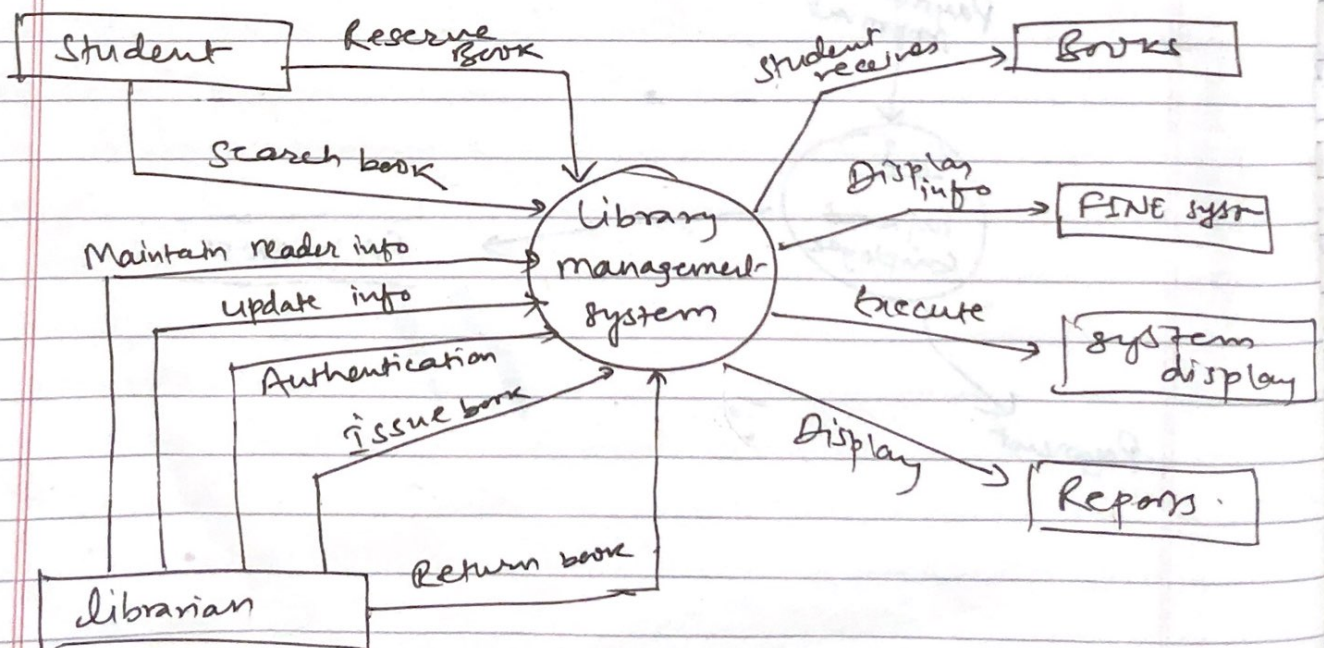 Student
Reserve
Book
Search book
Maintain reader info
update info
Authentication
issue book
Return book
librarian
Library
management
system
Student
receives
Books
Display
info
FINE
Execute
system
display
Display